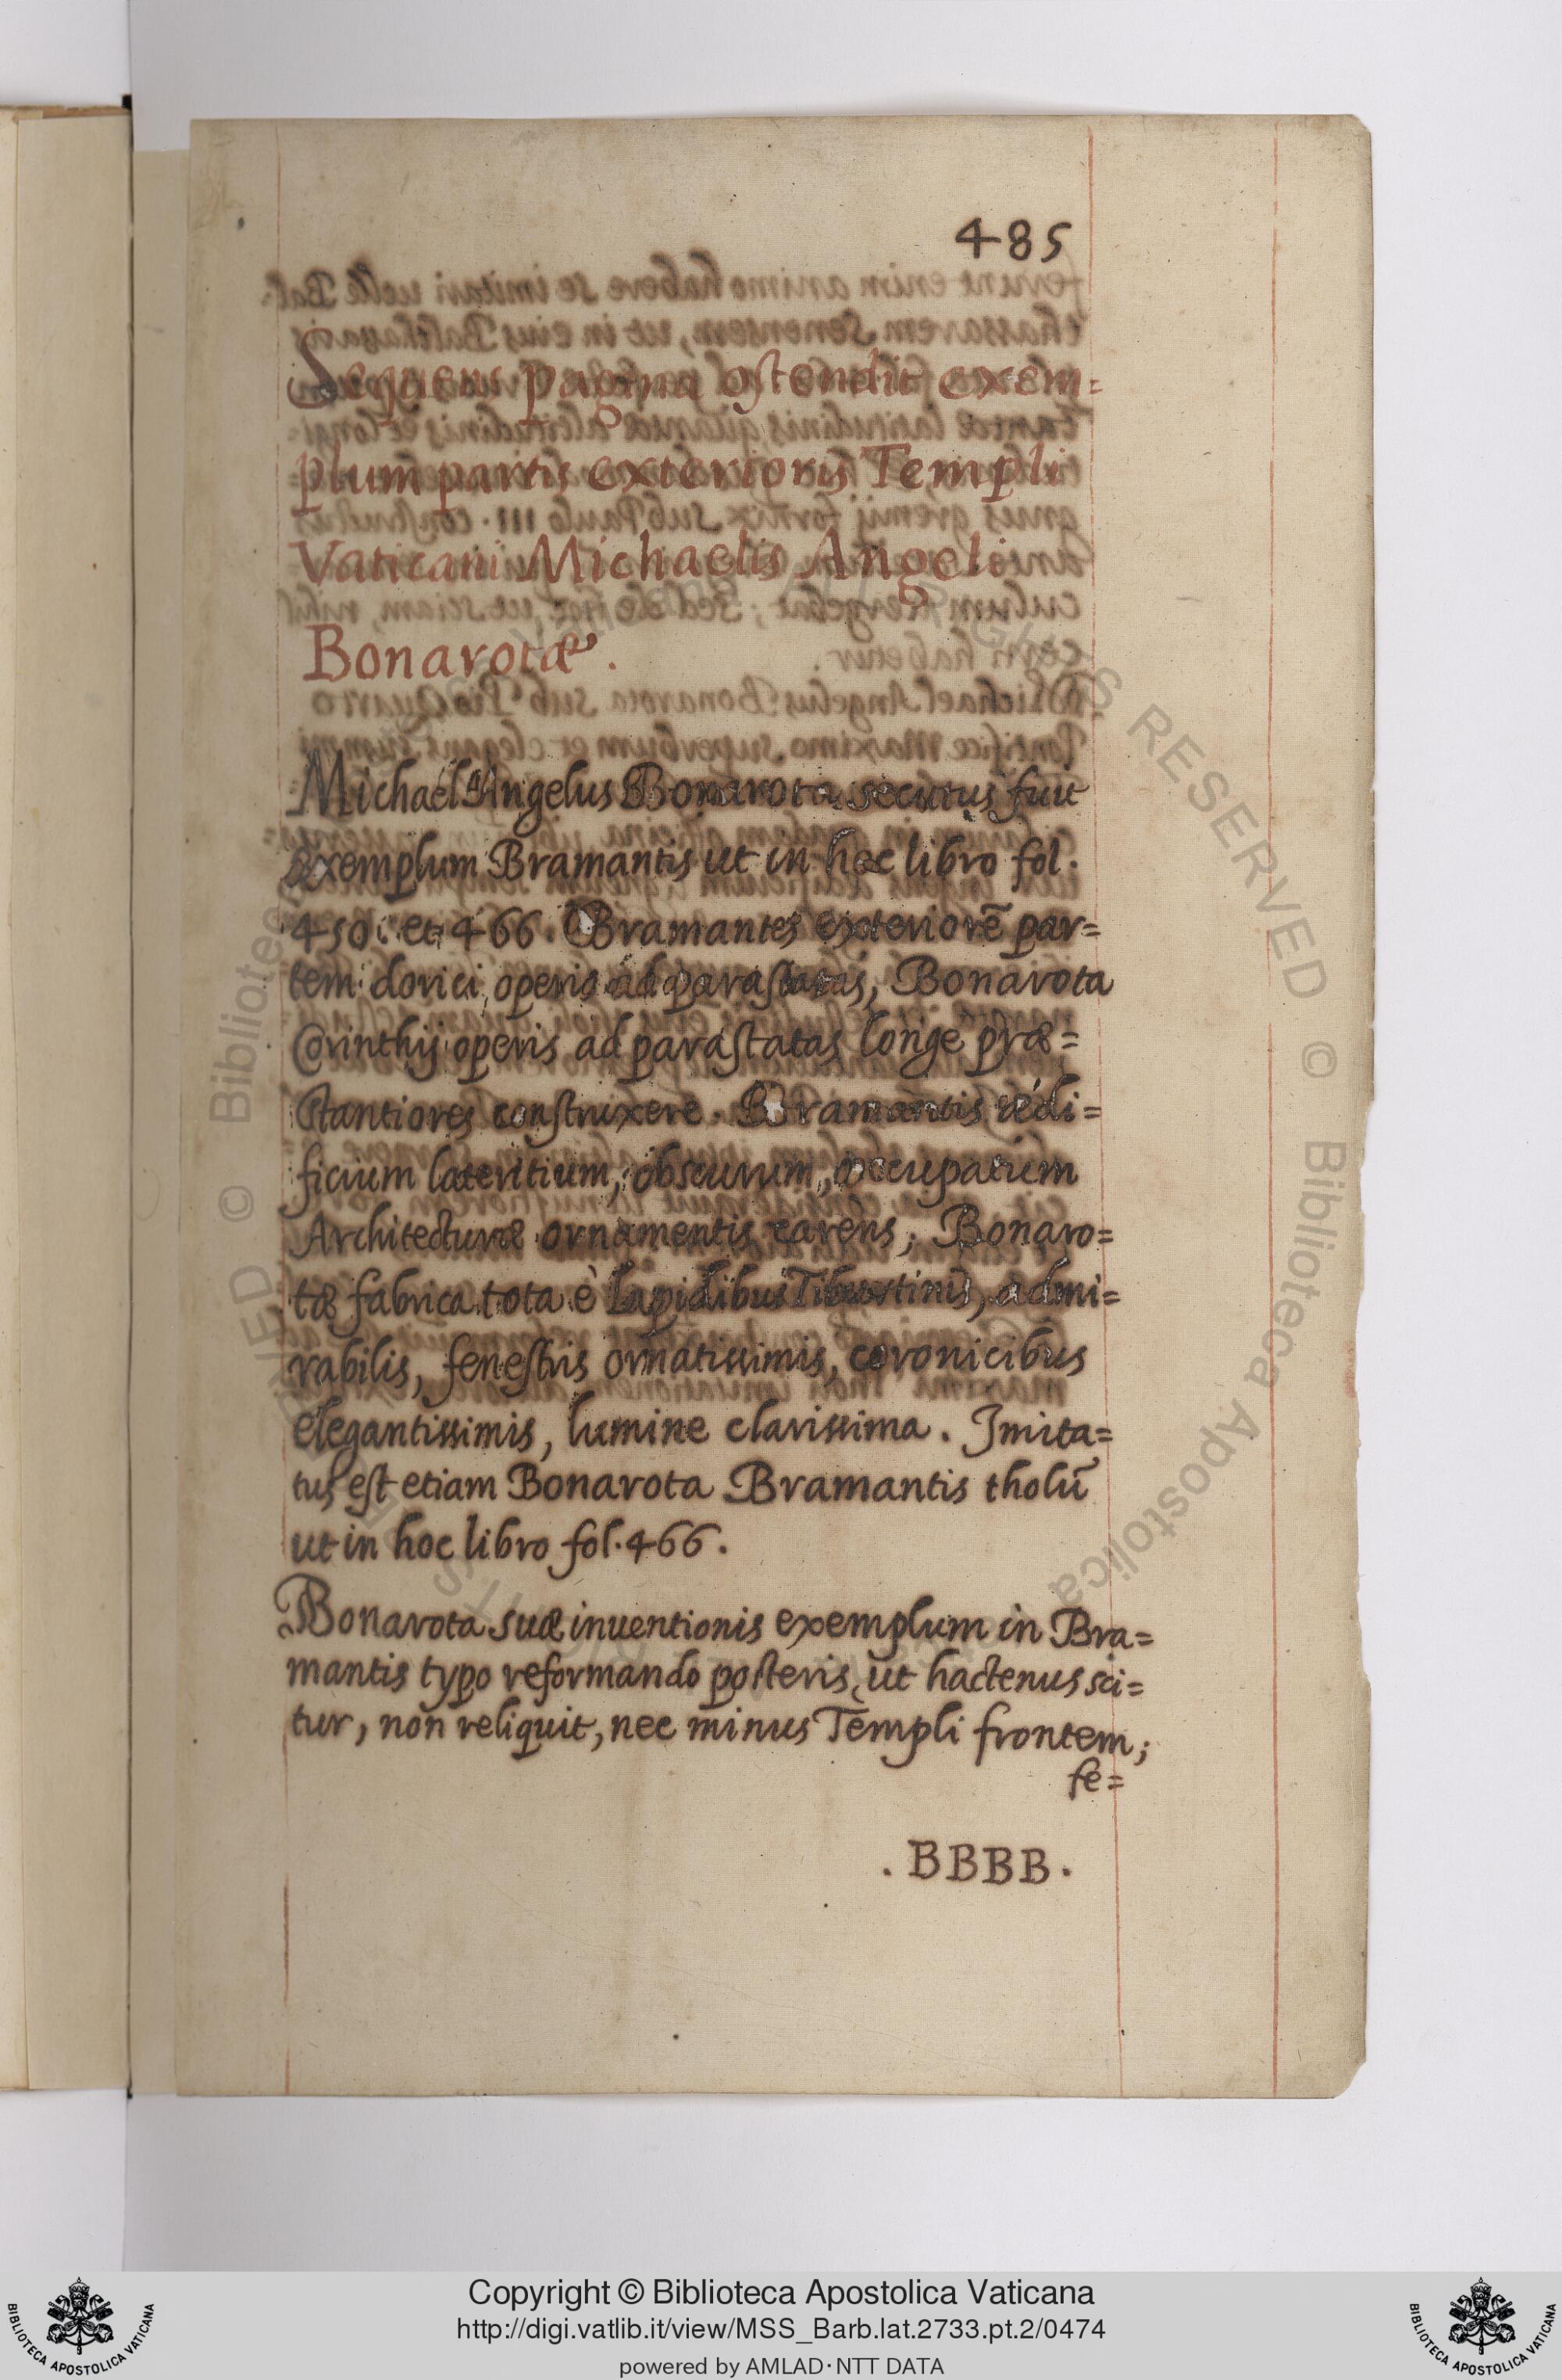 485
Sequens pagina ostendit exem=
plum partis exterioris Templi
Vaticani Michaelis Angeli
Bonarotæ.
Michael Angelus Bonarota secutus fuit
exemplum Bramantis ut in hoc libro fol.
450. et 466. Bramantes exteriorē par=
tem dorici operis ad parastatas, Bonarota
Corinthij operis ad parastatas longe præ=
stantiores construxere. Bramantis ædi=
ficium lateritium, obscurum, occupatum
Architecturæ ornamentis carens, Bonaro=
tæ fabrica tota è lapidibus Tiburtinis, admi=
rabilis, fenestris ornatissimis, coronicibus
elegantissimis, lumine clarissima. Imita=
tus est etiam Bonarota Bramantis tholū
ut in hoc libro fol. 466.
Bonarota suæ inuentionis exemplum in Bra=
mantis typo reformando posteris, ut hactenus sci=
tur, non reliquit, nec minus Templi frontem;
fe=
.BBBB.
Copyright © Biblioteca Apostolica Vaticana
http://digi.vatlib.it/view/MSS_Barb.lat.2733.pt.2/0474
powered by AMLAD·NTT DATA
BIBLIOTECA APOSTOLICA VATICANA
BIBLIOTECA APOSTOLICA VATICANA